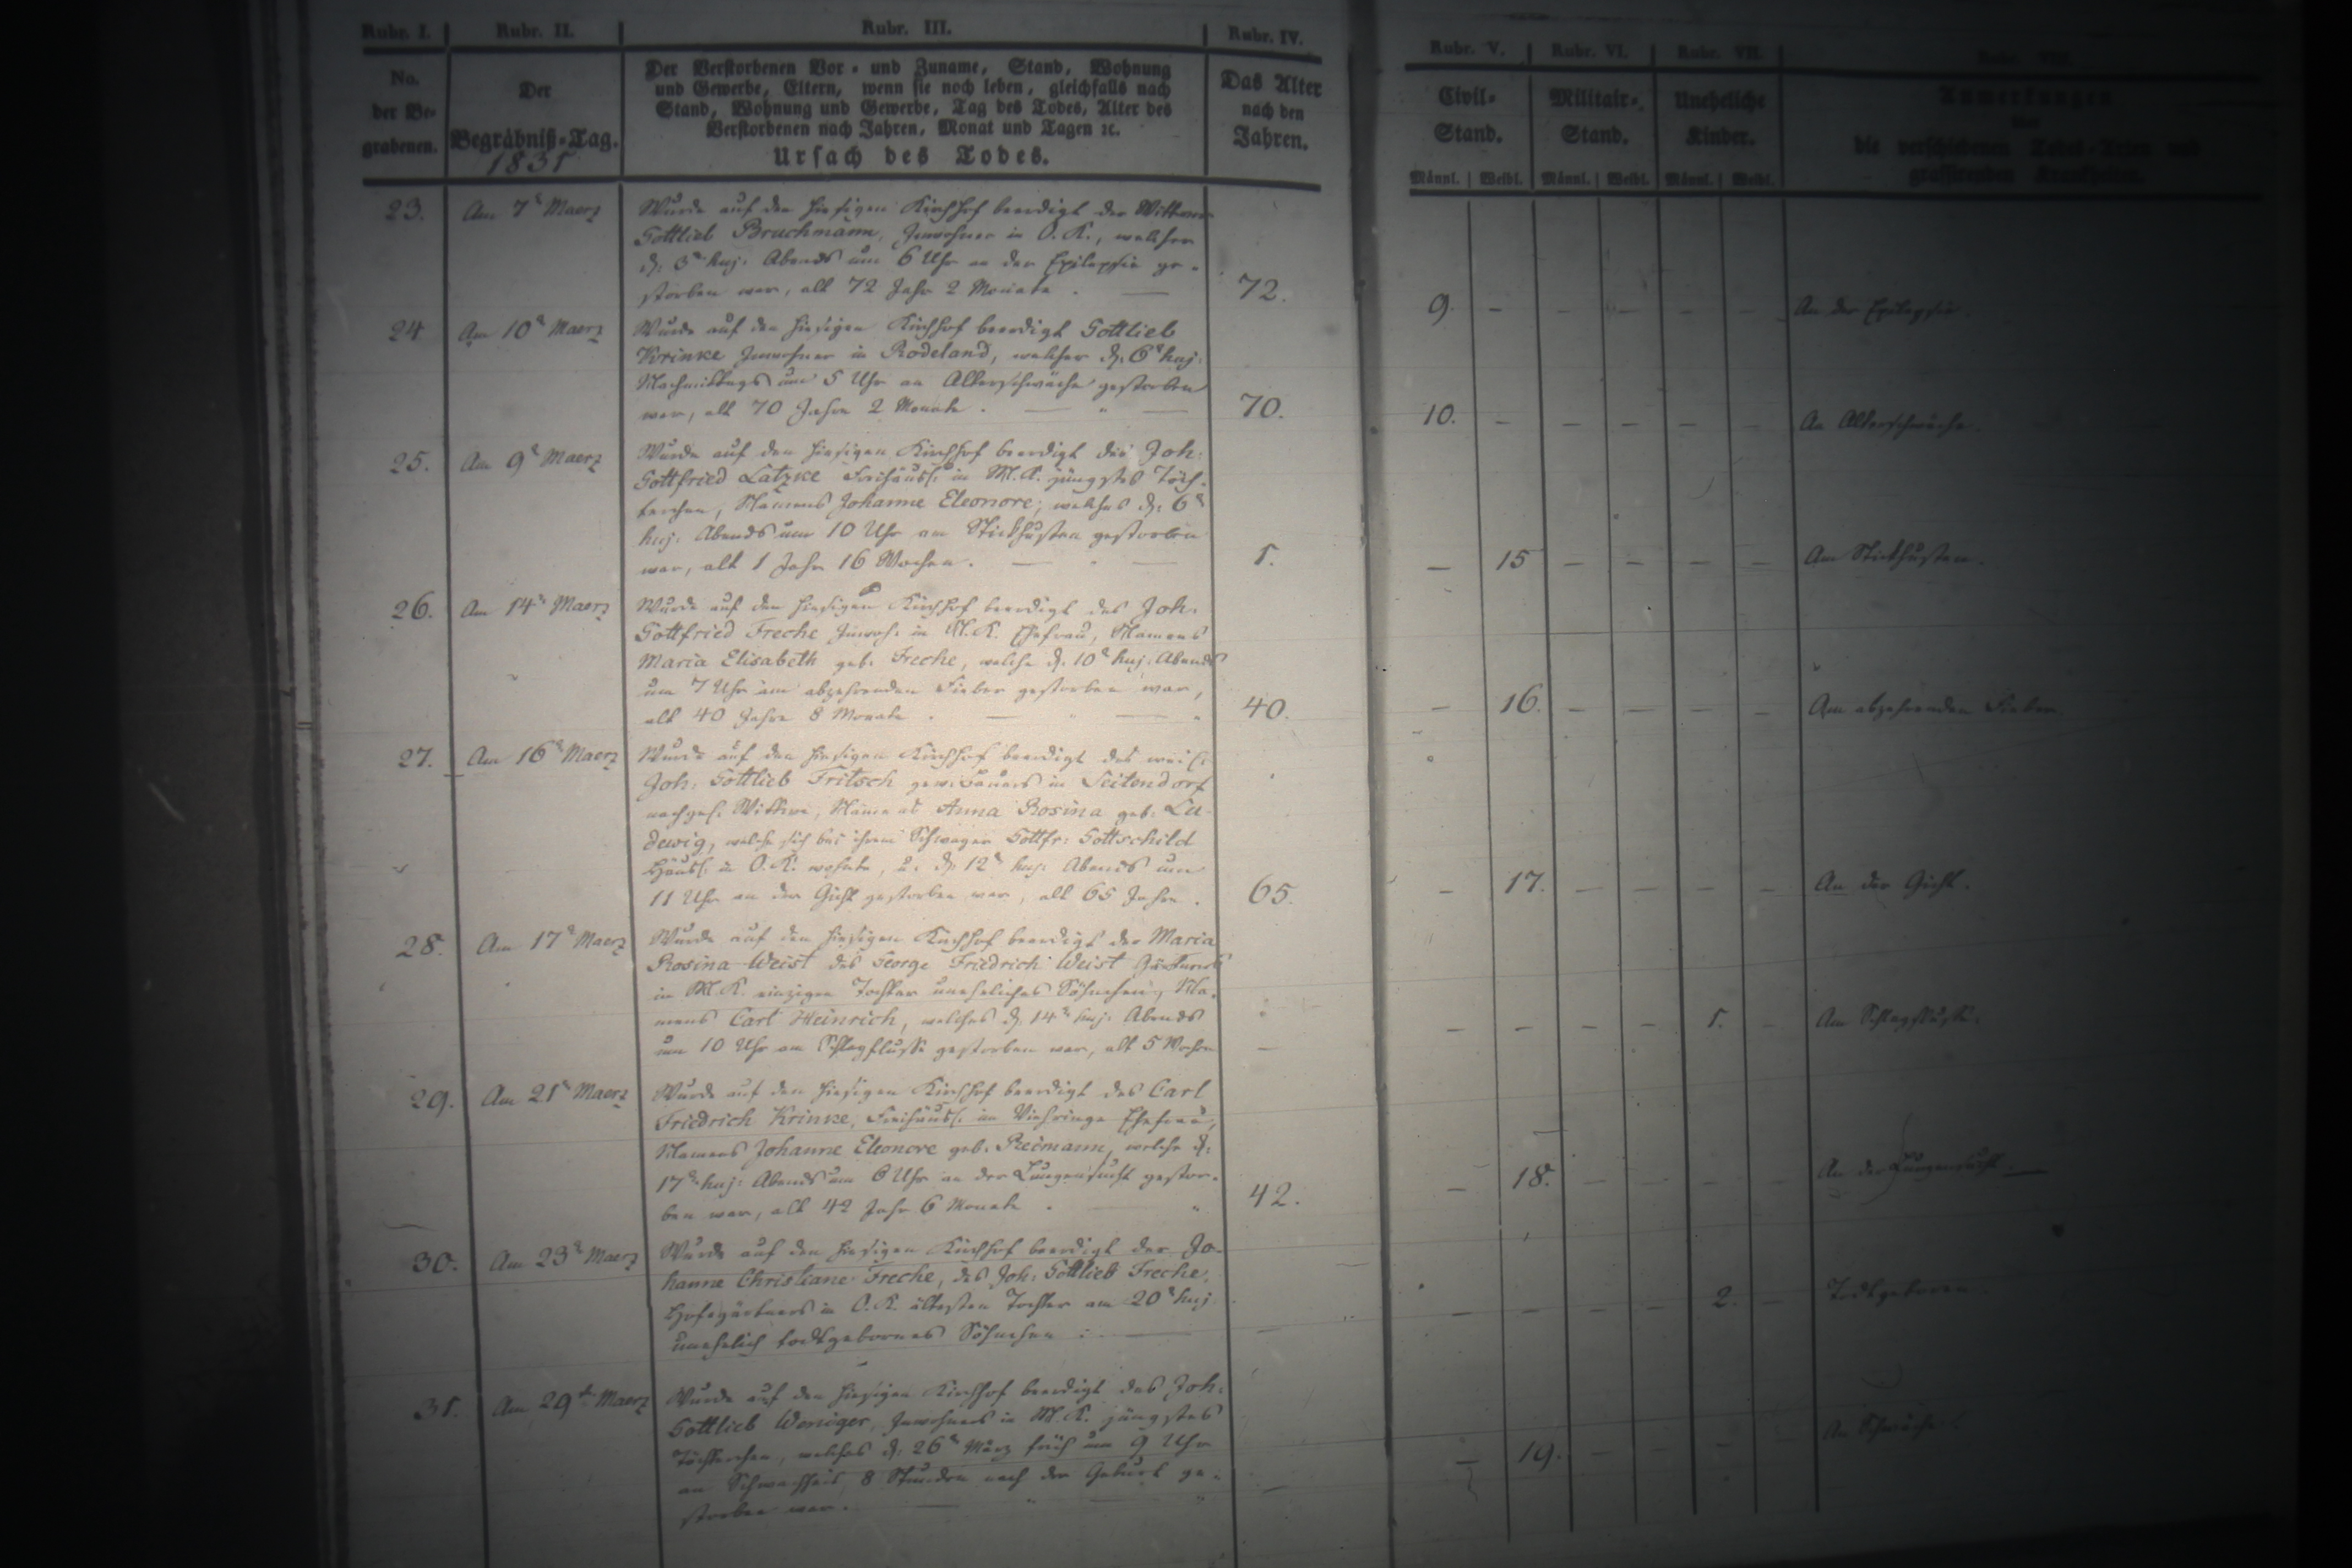 Rubr. I. Rubr. II. Rubr. III. Rubr. IV. Rubr. V. Rubr. VI. Rubr. VII.
No. der Be-grabenen.
Der Begräbniß-Tag.
1831
Der Verstorbenen Vor- und Zuname, Stand, Wohnung
und Gewerbe, Eltern, wenn sie noch leben, gleichfalls nach
Stand, Wohnung und Gewerbe, Tag des Todes, Alter des
Verstorbenen nach Jahren, Monat und Tagen ꝛc.
Ursach des Todes.
Das Alter nach den Jahren.
Civil-Stand.
Militair-Stand.
Uneheliche Kinder.
Anmerkungen
über
die verschiedenen Todes-Arten und
grassirenden Krankheiten.
Männl. Weibl. Männl. Weibl. Männl. Weibl.
23. Am 7t Maerz
Wurde auf den hiesigen Kirchhof beerdigt der Wittwer
Gottlieb Bruchmann, Inwohner in O. K., welcher
d. 3t huj. Abends um 6 Uhr an der Epilepsie ge-
storben war, alt 72 Jahr 2 Monate. — 72.
9. - - - - - An der Epilepsie.
24 Am 10t Maerz
Wurde auf den hiesigen Kirchhof beerdigt Gottlieb
Krinke Inwohner in Rodeland, welcher d. 6t huj.
Nachmittags um 5 Uhr an Altersschwäche gestorben
war, alt 70 Jahre 2 Monate. — " — 70.
10. - - - - - An Altersschwäche.
25. Am 9t Maerz
Wurde auf den hiesigen Kirchhof beerdigt des Joh:
Gottfried Latzke Freihäusl: in M. K. jüngstes Töch-
terchen, Namens Johanne Eleonore, welches d. 6t
huj. Abends um 10 Uhr am Stickhusten gestorben
war, alt 1 Jahr 16 Wochen. — " — 1.
- 15 - - - - Am Stickhusten.
26. Am 14t Maerz
Wurde auf den hiesigen Kirchhof beerdigt des Joh.
Gottfried Freche Inwoh: in M. K. Ehefrau, Namens
Maria Elisabeth geb. Freche, welche d. 10t huj. Abends
um 7 Uhr am abzehrenden Fieber gestorben war,
alt 40 Jahre 8 Monate. — " — " 40.
- 16. - - - - Am abzehrenden Fieber.
27. Am 16t Maerz
Wurde auf den hiesigen Kirchhof beerdigt des weil:
Joh: Gottlieb Fritsch gew. Bauers in Seitendorf
nachgel: Wittwe, Namens Anna Rosina geb. Lu-
dewig, welche sich bei ihrem Schwager Gottfr: Gottschild
Häusl: in O. K. wohnte, u. d. 12t huj. Abends um
11 Uhr an der Gicht gestorben war, alt 65 Jahre. 65.
- 17. - - - - An der Gicht.
28. Am 17t Maerz
Wurde auf den hiesigen Kirchhof beerdigt der Maria
Rosina Weist des George Friedrich Weist Gärtners
in M. K. einzigen Tochter uneheliches Söhnchen, Na-
mens Carl Heinrich, welches d. 14t huj. Abends
um 10 Uhr am Schlagflusse gestorben war, alt 5 Wochen —
- - - - 1. - Am Schlagflusse.
29. Am 21t Maerz
Wurde auf den hiesigen Kirchhof beerdigt des Carl
Friedrich Krinke, Freihäusl: im Viehringe Ehefrau,
Namens Johanne Eleonore geb. Reimann, welche d.
17t huj. Abends um 6 Uhr an der Lungensucht gestor-
ben war, alt 42 Jahr 6 Monate. — " 42.
- 18. - - - - An der Lungensucht.
30. Am 23t Maerz
Wurde auf den hiesigen Kirchhof beerdigt der Jo-
hanne Christiane Freche, des Joh: Gottlieb Freche,
Hofegärtners in O. K. ältesten Tochter am 20t huj
unehelich todtgebornes Söhnchen. — —
- - - - 2. - Todtgeboren.
31. Am 29t Maerz
Wurde auf den hiesigen Kirchhof beerdigt des Joh:
Gottlieb Weniger, Inwohners in M. K. jüngstes
Töchterchen, welches d. 26t März früh um 9 Uhr
an Schwachheit, 8 Stunden nach der Geburt ge-
storben war. — " — " —
- 19. - - - - An Schwäche.